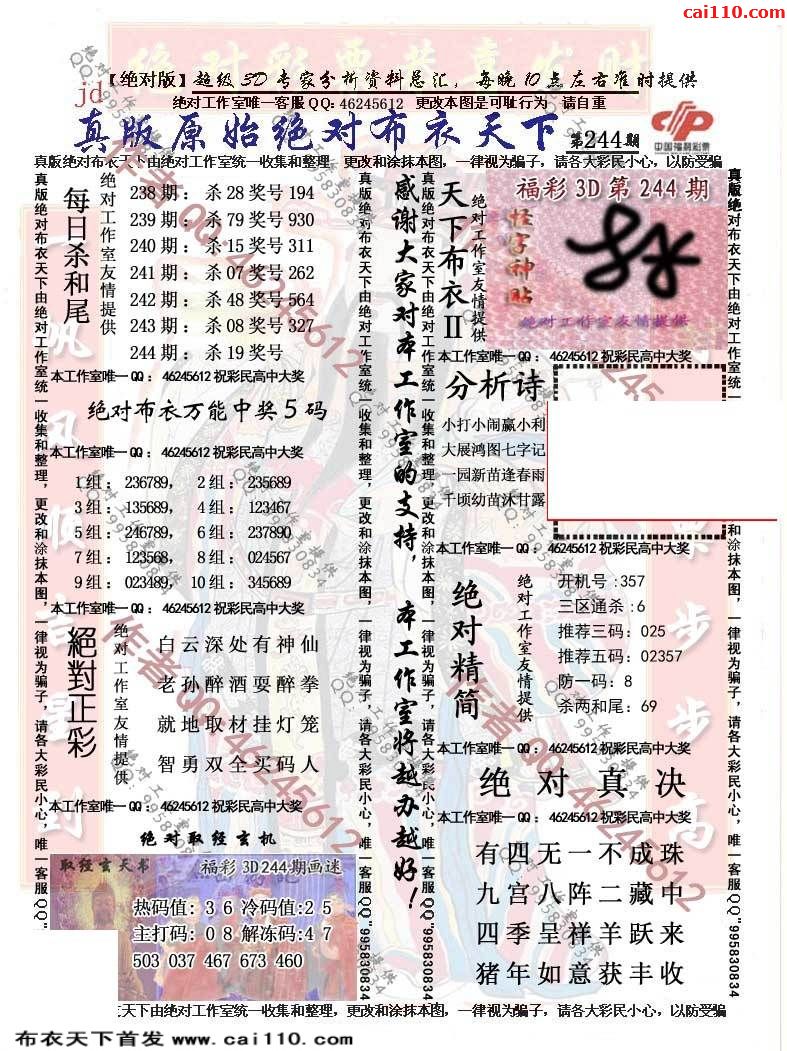 cai110.com
【绝对版】超级3D专家分析资料总汇，每晚10点左右准时提供
jd
绝对工作室唯一客服QQ：46245612 更改本图是可耻行为 请自重
真版原始绝对布衣天下 第244期
中国福利彩票
真版绝对布衣天下由绝对工作室统一收集和整理，更改和涂抹本图，一律视为骗子，请各大彩民小心，以防受骗
每日杀和尾
绝对工作室友情提供
238期：杀28奖号194
239期：杀79奖号930
240期：杀15奖号311
241期：杀07奖号262
242期：杀48奖号564
243期：杀08奖号327
244期：杀19奖号
本工作室唯一QQ：46245612祝彩民高中大奖
绝对布衣万能中奖5码
本工作室唯一QQ：46245612祝彩民高中大奖
1组：236789， 2组：235689
3组：135689， 4组：123467
5组：246789， 6组：237890
7组：123568， 8组：024567
9组：023489， 10组：345689
本工作室唯一QQ：46245612祝彩民高中大奖
絕對正彩
绝对工作室友情提供
白云深处有神仙
老孙醉酒耍醉拳
就地取材挂灯笼
智勇双全买码人
本工作室唯一QQ：46245612祝彩民高中大奖
绝对取经玄机
取经玄天书
福彩3D244期画迷
热码值：3 6 冷码值：2 5
主打码：0 8 解冻码：4 7
503 037 467 673 460
感谢大家对本工作室的支持，本工作室将越办越好！
天下布衣II
绝对工作室友情提供
福彩3D第244期
怪字神贴
绝对工作室友情提供
本工作室唯一QQ：46245612祝彩民高中大奖
分析诗
小打小闹赢小利
大展鸿图七字记
一园新苗逢春雨
千顷幼苗沐甘露
本工作室唯一QQ：46245612祝彩民高中大奖
绝对精简
绝对工作室友情提供
开机号：357
三区通杀：6
推荐三码：025
推荐五码：02357
防一码：8
杀两和尾：69
本工作室唯一QQ：46245612祝彩民高中大奖
绝对真决
本工作室唯一QQ：46245612祝彩民高中大奖
有四无一不成珠
九宫八阵二藏中
四季呈祥羊跃来
猪年如意获丰收
真版绝对布衣天下由绝对工作室统一收集和整理，更改和涂抹本图，一律视为骗子，请各大彩民小心，唯一客服QQ"995830834
天下由绝对工作室统一收集和整理，更改和涂抹本图，一律视为骗子，请各大彩民小心，以防受骗
布衣天下首发 www.cai110.com